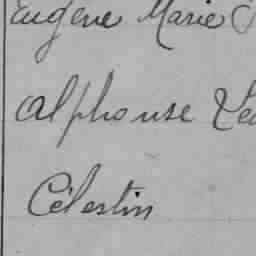 Eugène Marie
Alphonse
Célestin